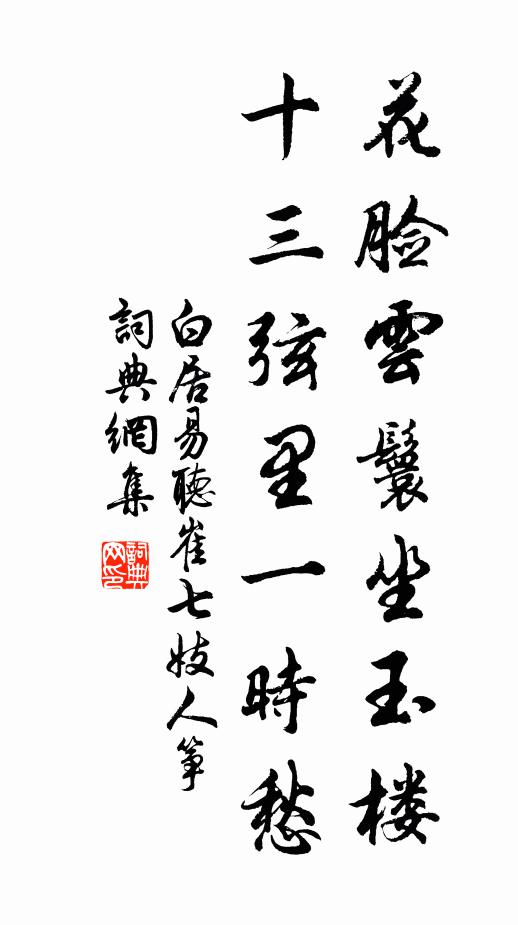 花臉雲鬟坐玉楼
十三弦里一時愁
白居易聽崔七妓人筝
詞典網集
詞典网印